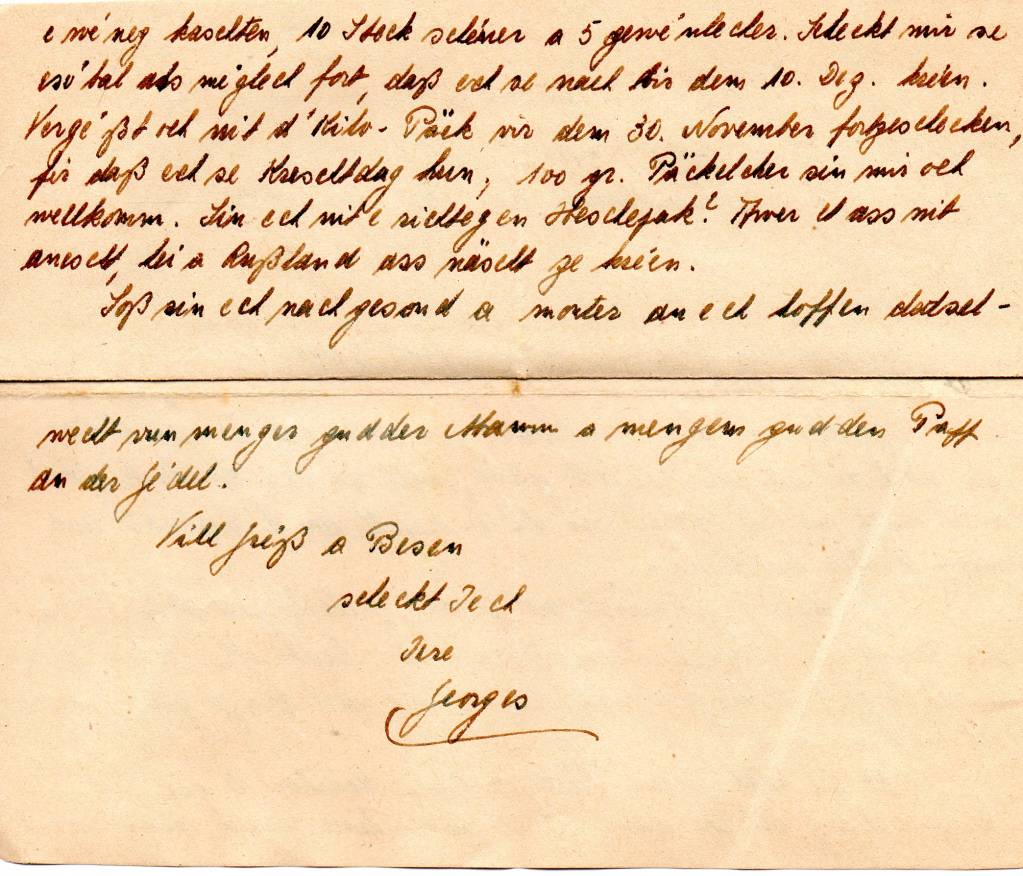 e wéneg kaschten, 10 Steck schéiner a 5 gewéinlecher. Scheckt mir se
esó bal als méiglech fort, daß ech se nach bis dem 10. Dez. kréien.
Vergéßt och nit d'Kilo-Päk vir dem 30. November fortzeschecken,
fir daß ech se Kreschtdag hun, 100 gr. Päckelcher sin mir och
wellkomm. Sin ech nit e richtegen Heeschefak? Awer et ass nit
anescht, hei a Rußland ass näscht ze kréien.
Soß sin ech nach gesond a monter an ech hoffen datsel-
wecht vun menger gudder Mamm a mengem gudden Papp
an der Jédel.
Vill Gréiß a Besen
scheckt Iech
Iere
Georges